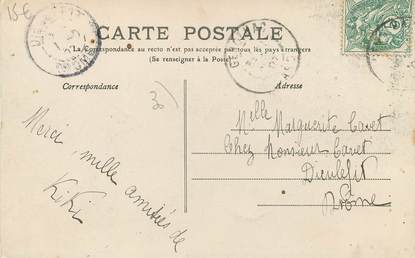 15€
CARTE POSTALE
La Correspondance au recto n'est pas acceptée par tous les pays étrangers
(Se renseigner à la Poste)
Correspondance
Adresse
Merci, mille amitiés de
KiKi
Mlle Marguerite Cavet
Chez Monsieur Cavet
Dieulefit
Drôme